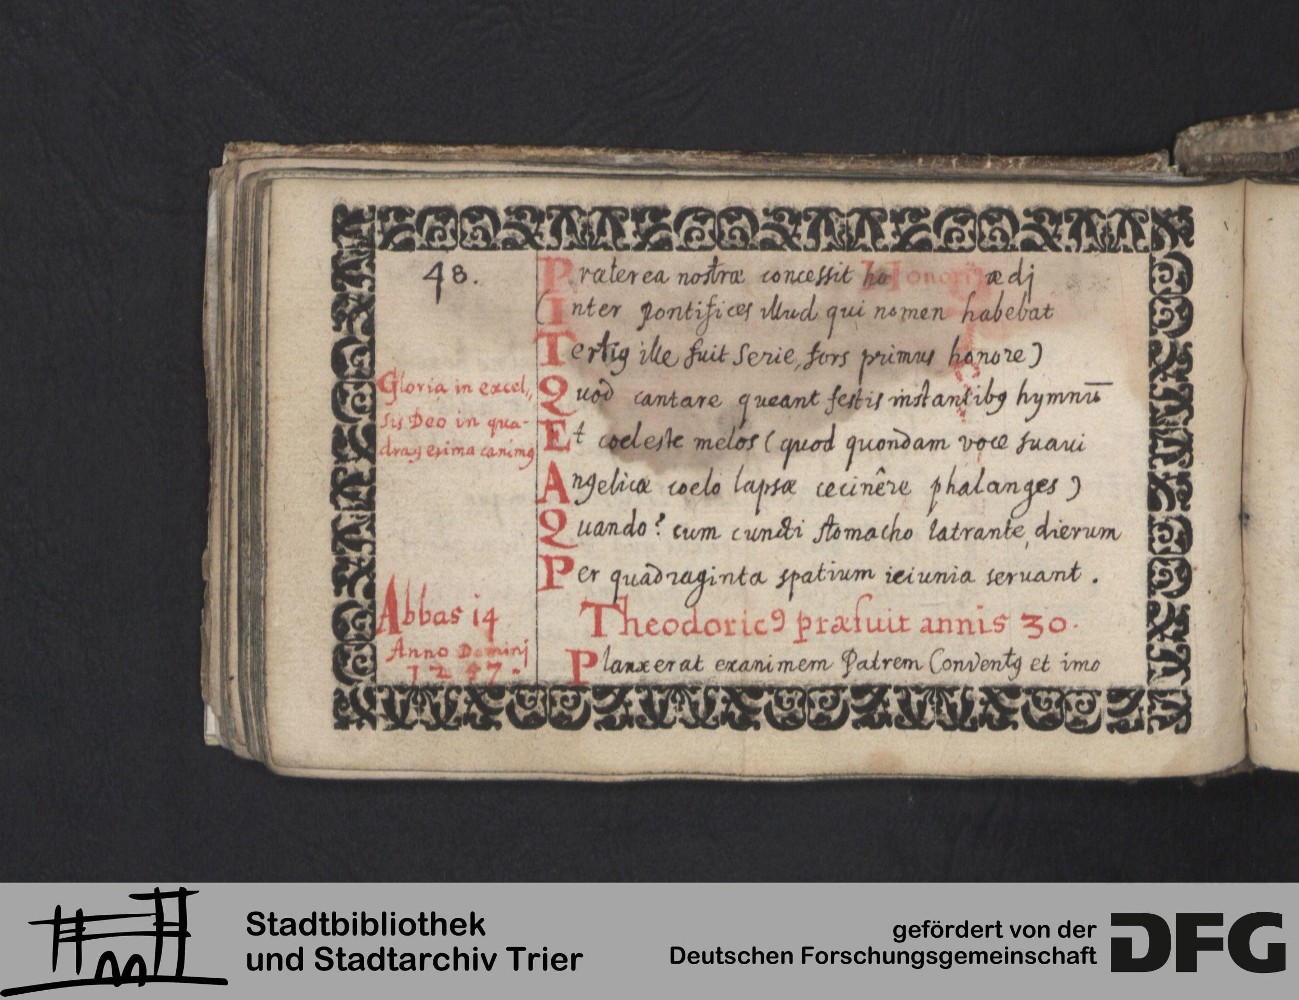 48.
Præterea nostræ concessit Honori9 ædj
(Inter pontifices illud qui nomen habebat
Terti9 ille fuit serie, fors primus honore)
Quod cantare queant festis instantib9 hymnū
Et coeleste melos (quod quondam voce suaui
Angelicæ coelo lapsæ cecinêre phalanges)
Quando? cum cuncti stomacho latrante, dierum
Per quadraginta spatium ieiunia seruant.
Gloria in excel,,
sis Deo in qua-
dragesima canim9
Abbas 14
Anno Dominj
1247.
Theodoric9 præfuit annis 30.
Planxerat exanimem Patrem Convent9 et imo
Stadtbibliothek
und Stadtarchiv Trier
gefördert von der
Deutschen Forschungsgemeinschaft
DFG